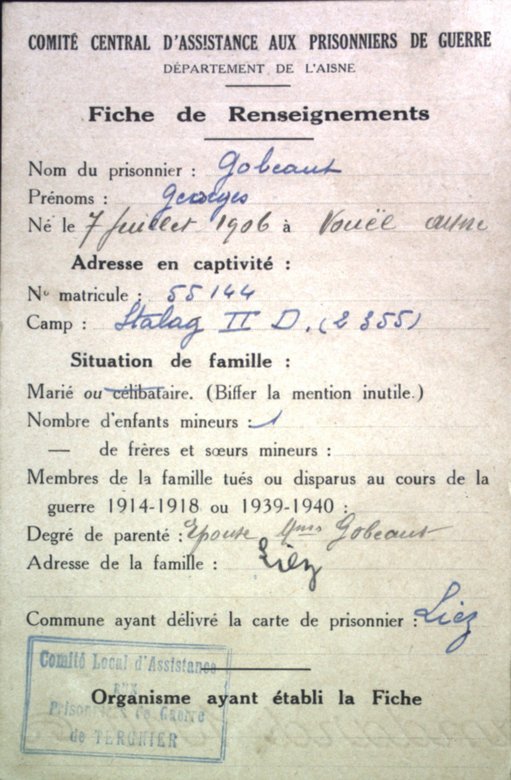 COMITÉ CENTRAL D'ASSISTANCE AUX PRISONNIERS DE GUERRE
DÉPARTEMENT DE L'AISNE
Fiche de Renseignements
Nom du prisonnier : Gobeaut
Prénoms : Georges
Né le 7 Juillet 1906 à Vouël aisne
Adresse en captivité :
No matricule : 55144
Camp : Stalag II D. (2355)
Situation de famille :
Marié ou célibataire. (Biffer la mention inutile.)
Nombre d'enfants mineurs : 1
— de frères et sœurs mineurs :
Membres de la famille tués ou disparus au cours de la
guerre 1914-1918 ou 1939-1940 :
Degré de parenté : Epouse Mme Gobeaut
Adresse de la famille : Liez
Commune ayant délivré la carte de prisonnier : Liez
Comité Local d'Assistance
aux
Prisonniers de Guerre
de TERGNIER
Organisme ayant établi la Fiche